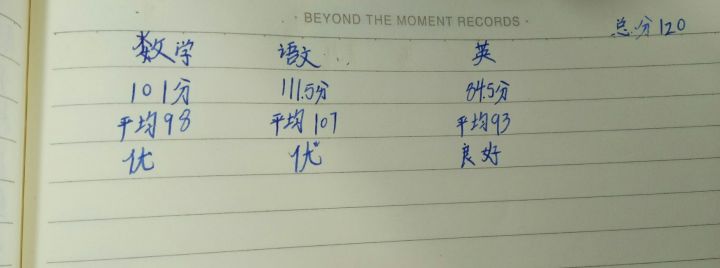 · BEYOND THE MOMENT RECORDS ·
总分120
数学 语文 英
101分 111.5分 84.5分
平均98 平均107 平均93
优 优 良好